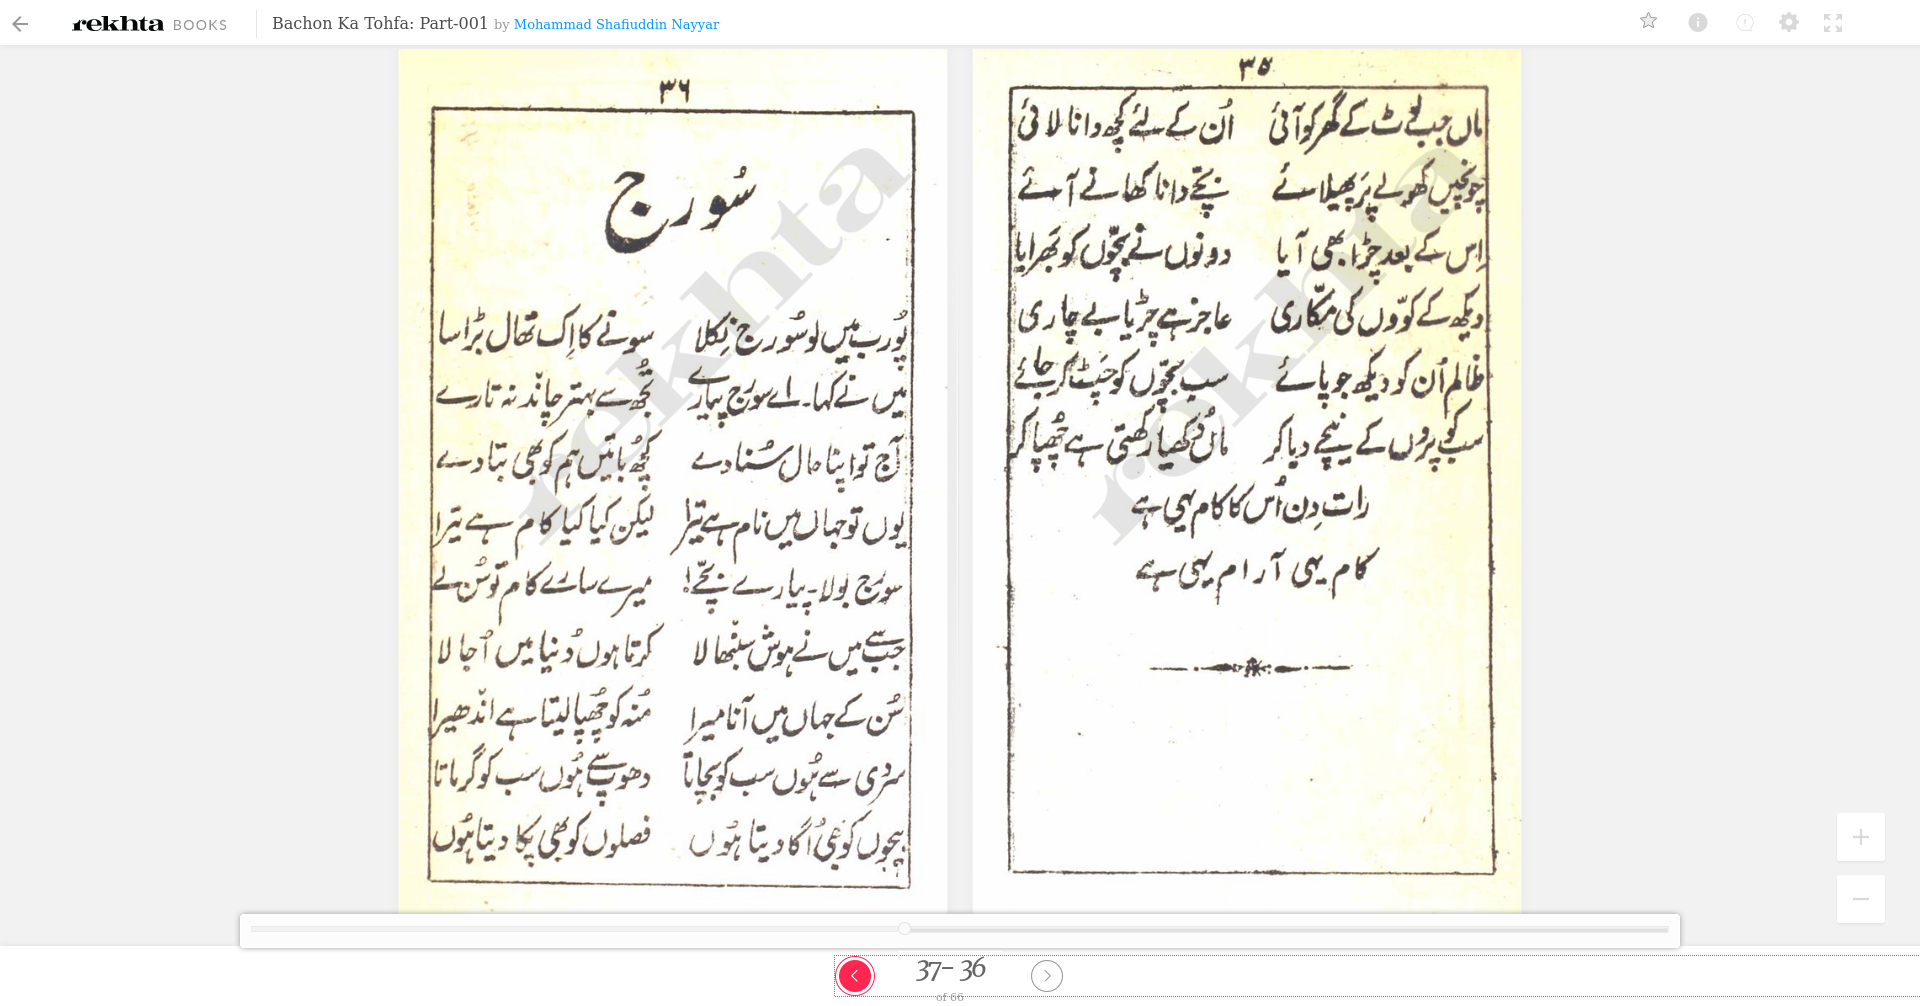 rekhta BOOKS
Bachon Ka Tohfa: Part-001 by Mohammad Shafiuddin Nayyar
۳۵
ماں جب لوٹ کے گھر کو آئی اُن کے لئے کچھ دانا لائی
چونچیں کھولے پَر پھیلائے بچّے دانا کھانے آئے
اِس کے بعد چڑا بھی آیا دونوں نے بچّوں کو بَھرایا
دیکھ کے کوّوں کی مکّاری عاجز ہے چڑیا بے چاری
ظالم اُن کو دیکھ جو پائے سب بچّوں کو چَٹ کر جائے
سب کو پروں کے نیچے دبا کر ماں دُکھیا رکھتی ہے چُھپا کر
رات دِن اُس کا کام یہی ہے
کام یہی آرام یہی ہے
۳۶
سُورج
پُورب میں لو سُورج نِکلا سونے کا اِک تھال بڑا سا
میں نے کہا۔ اے سورج پیارے تجُھ سے بہتر چاند نہ تارے
آج تو اپنا حال سُنا دے کچُھ باتیں ہم کو بھی بتا دے
یوں تو جہاں میں نام ہے تیرا لیکن کیا کیا کام ہے تیرا
سورج بولا۔ پیارے بچّے! میرے سارے کام تو سُن لے
جب سے میں نے ہوش سنبھالا کرتا ہوں دُنیا میں اُجالا
سُن کے جہاں میں آنا میرا مُنہ کو چُھپا لیتا ہے اندھیرا
سردی سے ہُوں سب کو بچاتا دھوپ سے ہُوں سب کو گرماتا
بیجوں کو بھی اُگا دیتا ہُوں فصلوں کو بھی پکا دیتا ہُوں
rekhta
rekhta
37- 36
of 66